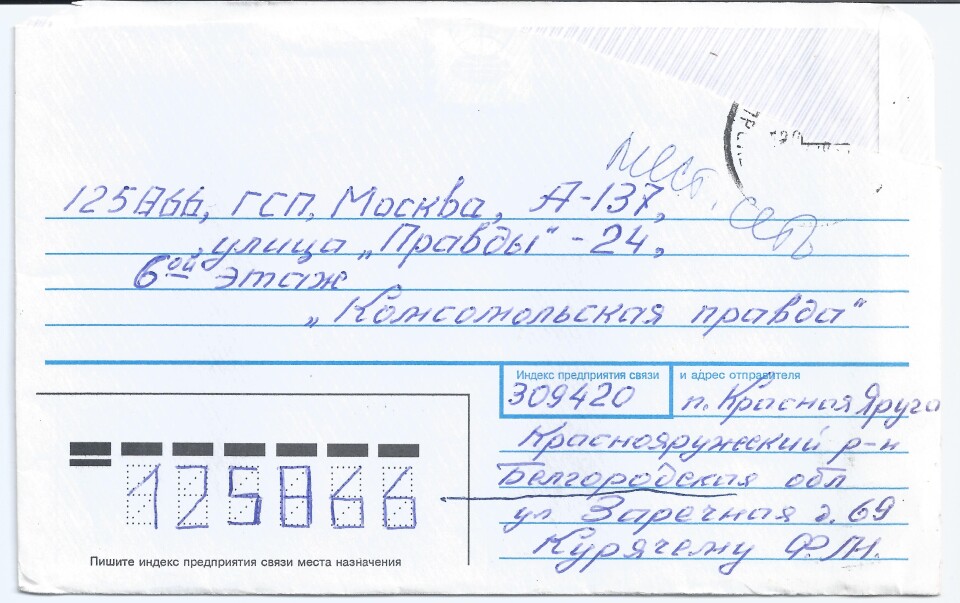 125866, ГСП, Москва, А-137,
улица „Правды" - 24,
6ой этаж
„Комсомольская правда"
Индекс предприятия связи
и адрес отправителя
309420
п. Красная Яруга
Краснояружский р-н
Белгородская обл
ул Заречная д. 69
Курячему Ф.М.
125866
Пишите индекс предприятия связи места назначения